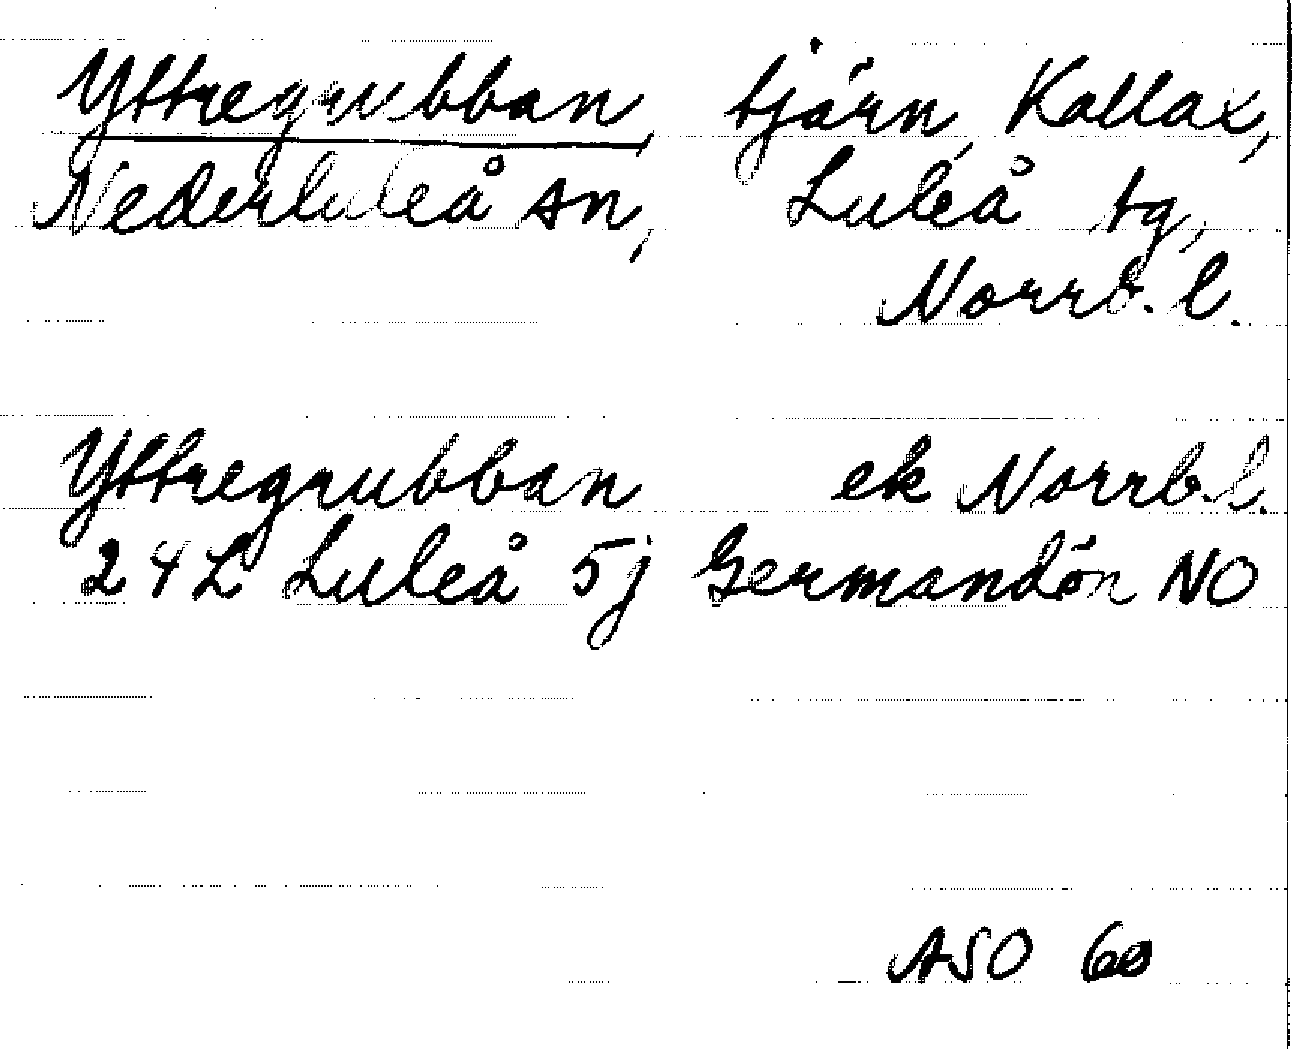 Yttregrubban, tjärn, Kallax,
Nederluleå sn, Luleå tg,
Norrb. l.
Yttregrubban ek Norrb. l.
24L Luleå 5j Germandön NO
ASO 60